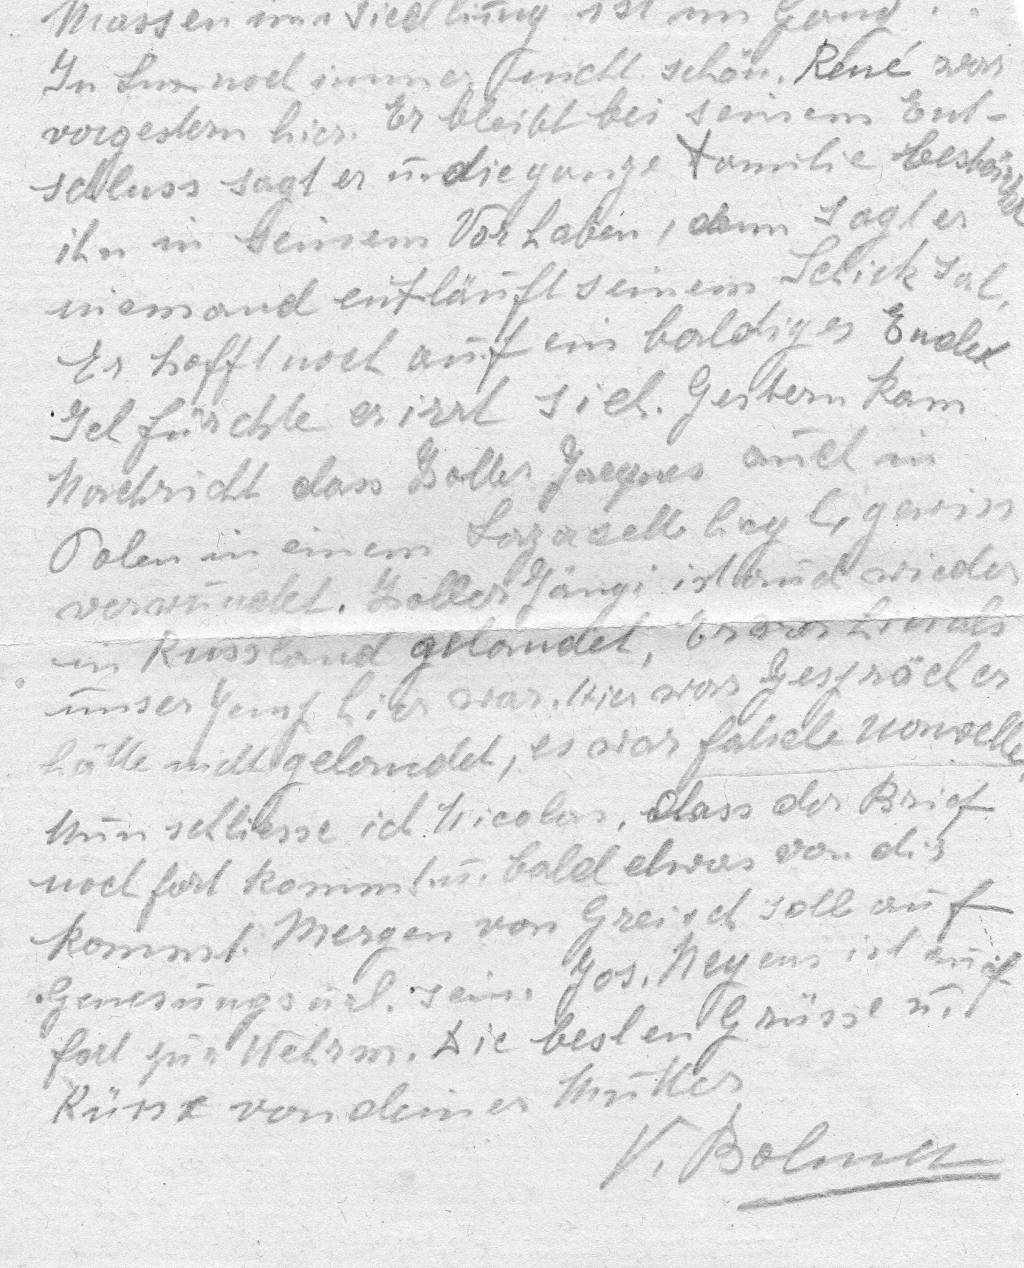 Massenumsiedlung ist im Gang . .
In Lux noch immer nicht schön. René war
vorgestern hier. Er bleibt bei seinem Ent-
schluss sagt er u. die ganze Familie
ihn in seinem Vorhaben, denn sagt er
niemand entläuft seinem Schicksal.
Er hofft noch auf ein baldiges Ende
Ich fürchte er irrt sich. Gestern kam
Nachricht dass Zoller Jacques auch in
Polen in einem Lazarett lieg gewiss
verwundet. Zoller Jängi ist auch wieder
in Russland gelandet, Er war hier als
unser Jemp hier war. Hier war Gespräch er
hätte nicht gelandet, es war falsche
Nun schliesse ich Nicolas, dass der Brief
noch fort kommt u. bald etwas von dir
kommt. Mergen von Greisch soll auf
Genesungsurl. sein. Jos. Neyens ist auch
fort zur Wehrm. Die besten Grüsse u.
Küsse von deiner Mutter
V. Bolmer